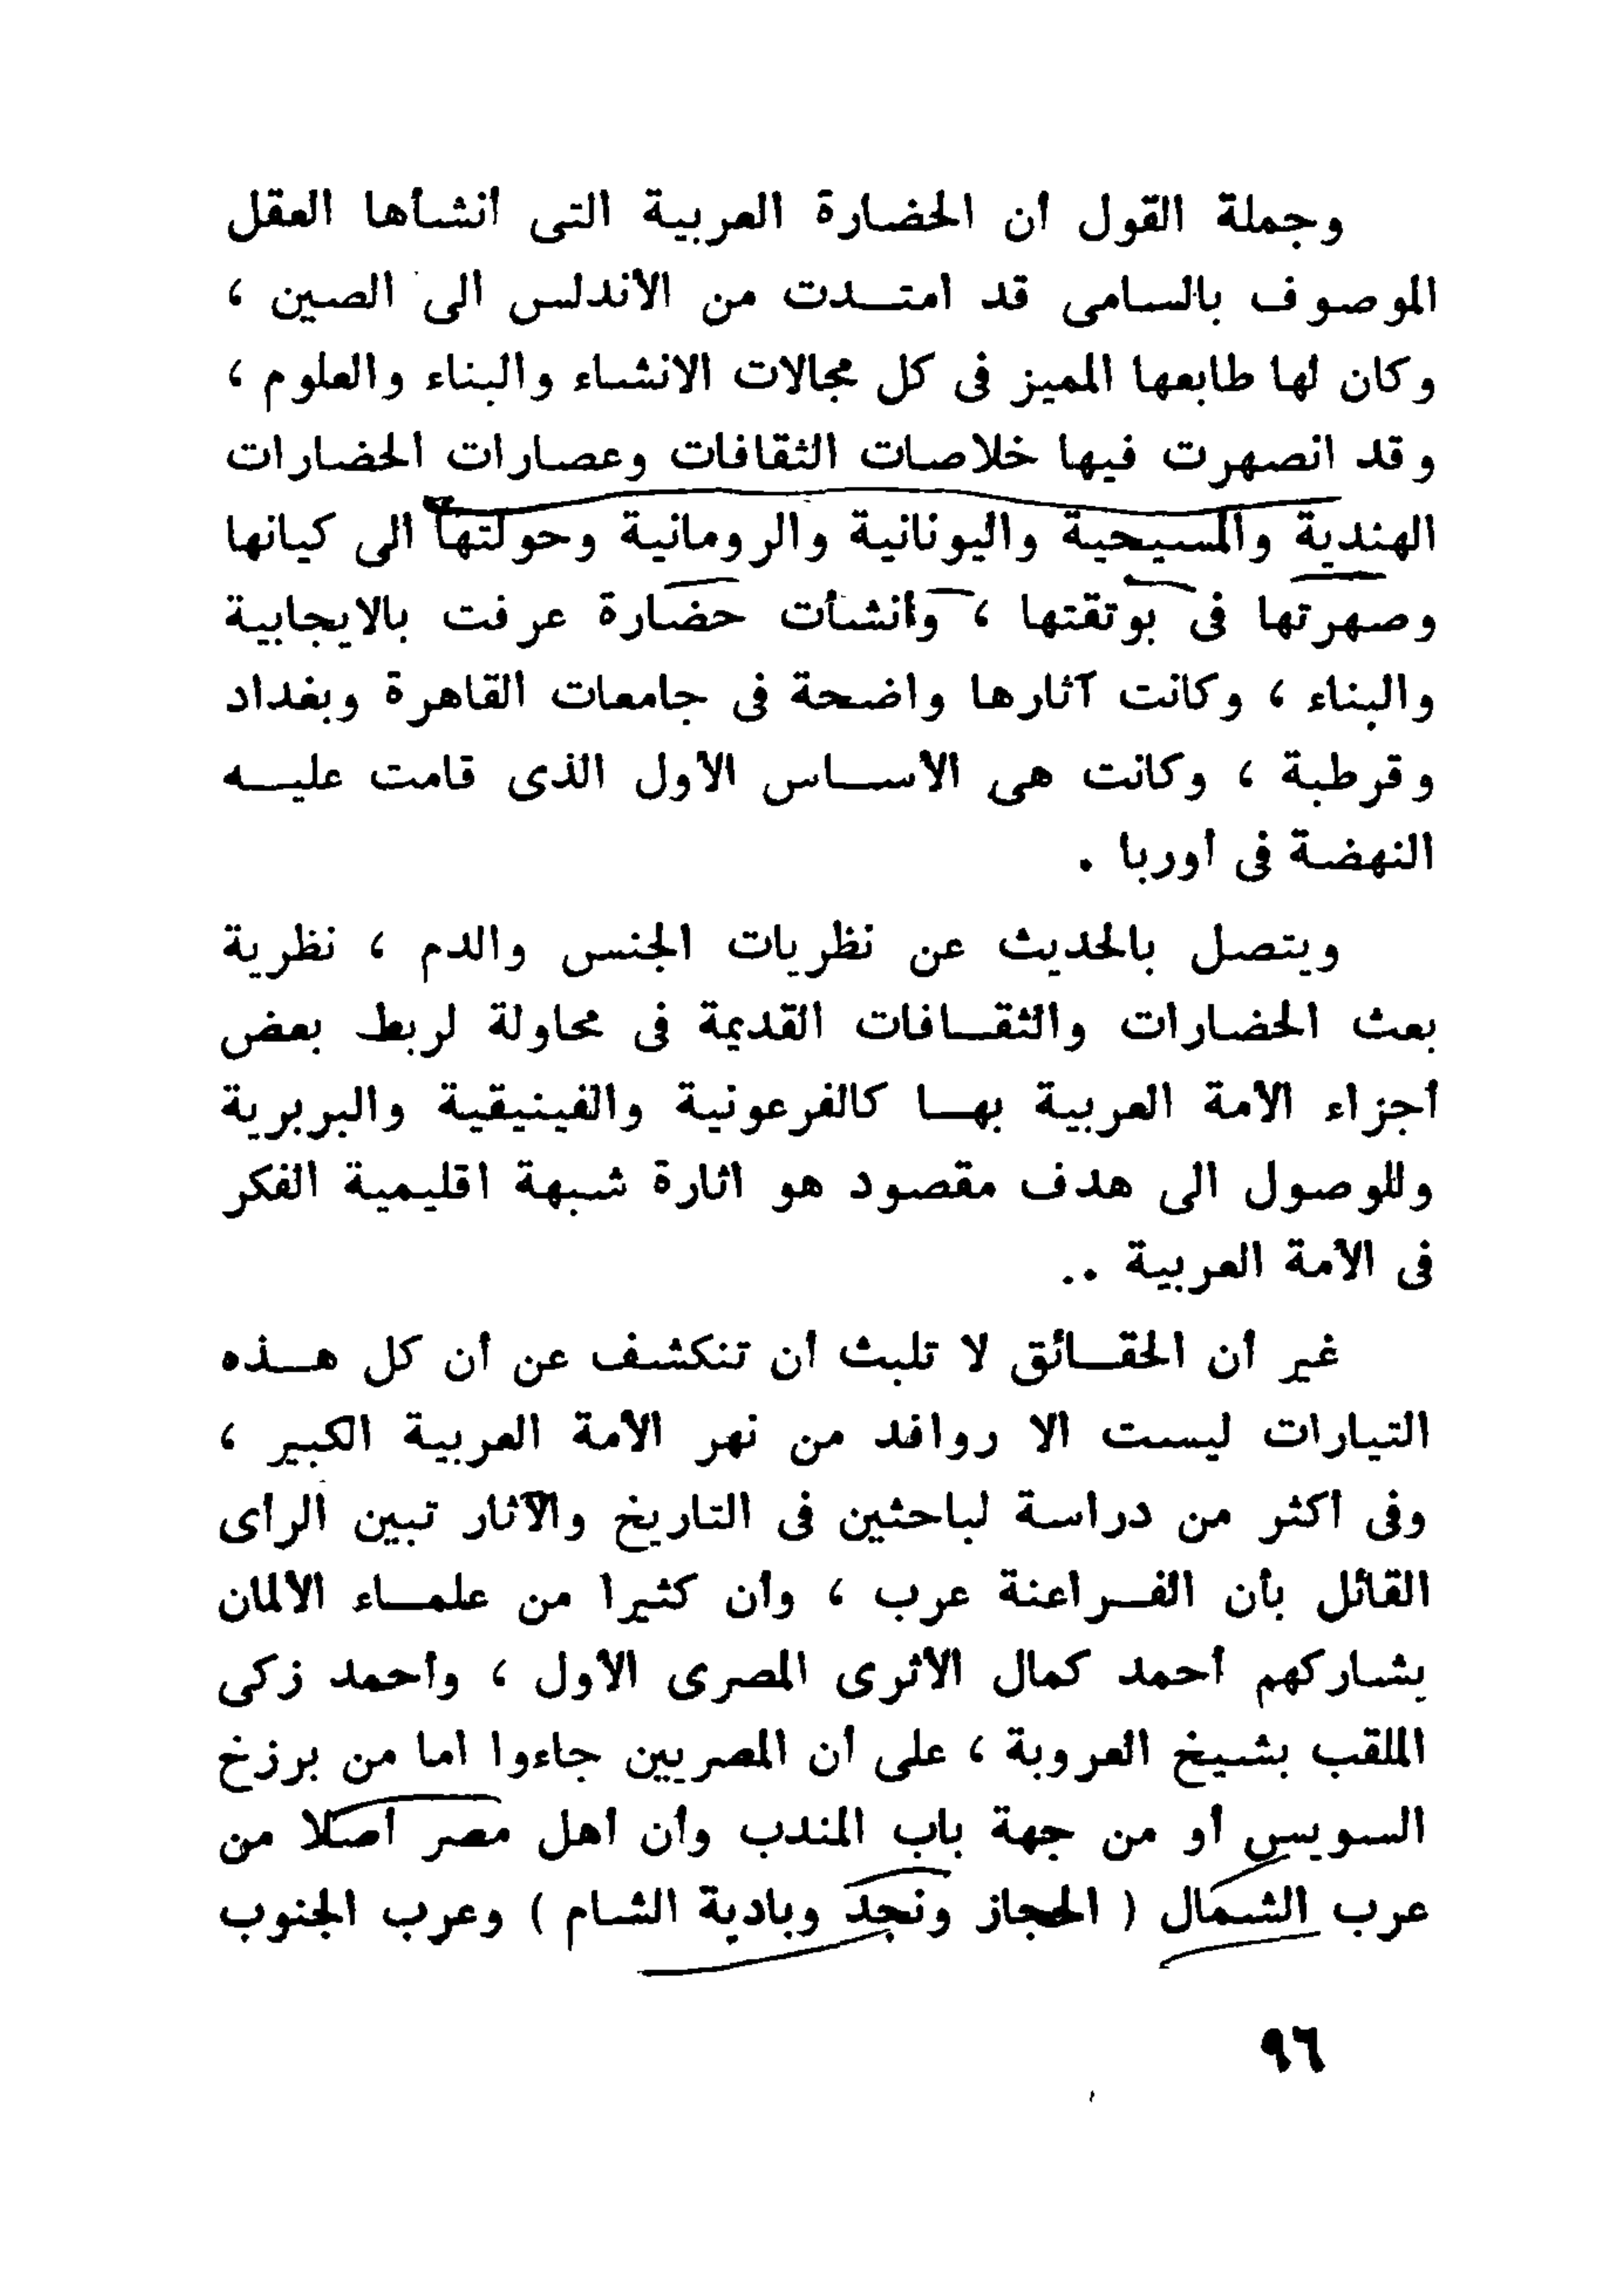 وجملة القول أن الحضارة العربية التى أنشأها العقل
الموصوف بالسامى قد امتدت من الأندلس الى الصين ،
وكان لها طابعها المميز فى كل مجالات الانشاء والبناء والعلوم ،
وقد انصهرت فيها خلاصات الثقافات وعصارات الحضارات
الهندية والمسيحية واليونانية والرومانية وحولتها الى كيانها
وصهرتها فى بوتقتها ، وأنشأت حضارة عرفت بالايجابية
والبناء ، وكانت آثارها واضحة فى جامعات القاهرة وبغداد
وقرطبة ، وكانت هى الأساس الأول الذى قامت عليه
النهضة فى أوربا .
ويتصل بالحديث عن نظريات الجنس والدم ، نظرية
بعث الحضارات والثقافات القديمة فى محاولة لربط بعض
أجزاء الأمة العربية بها كالفرعونية والفينيقية والبربرية
وللوصول الى هدف مقصود هو اثارة شبهة اقليمية الفكر
فى الأمة العربية ..
غير أن الحقائق لا تلبث أن تنكشف عن أن كل هذه
التيارات ليست الا روافد من نهر الأمة العربية الكبير ،
وفى أكثر من دراسة لباحثين فى التاريخ والآثار تبين الرأى
القائل بأن الفراعنة عرب ، وأن كثيرا من علماء الألمان
يشاركهم أحمد كمال الأثرى المصرى الأول ، وأحمد زكى
الملقب بشيخ العروبة ، على أن المصريين جاءوا اما من برزخ
السويس أو من جهة باب المندب وأن أهل مصر أصلا من
عرب الشمال ( الحجاز ونجد وبادية الشام ) وعرب الجنوب
٩٦